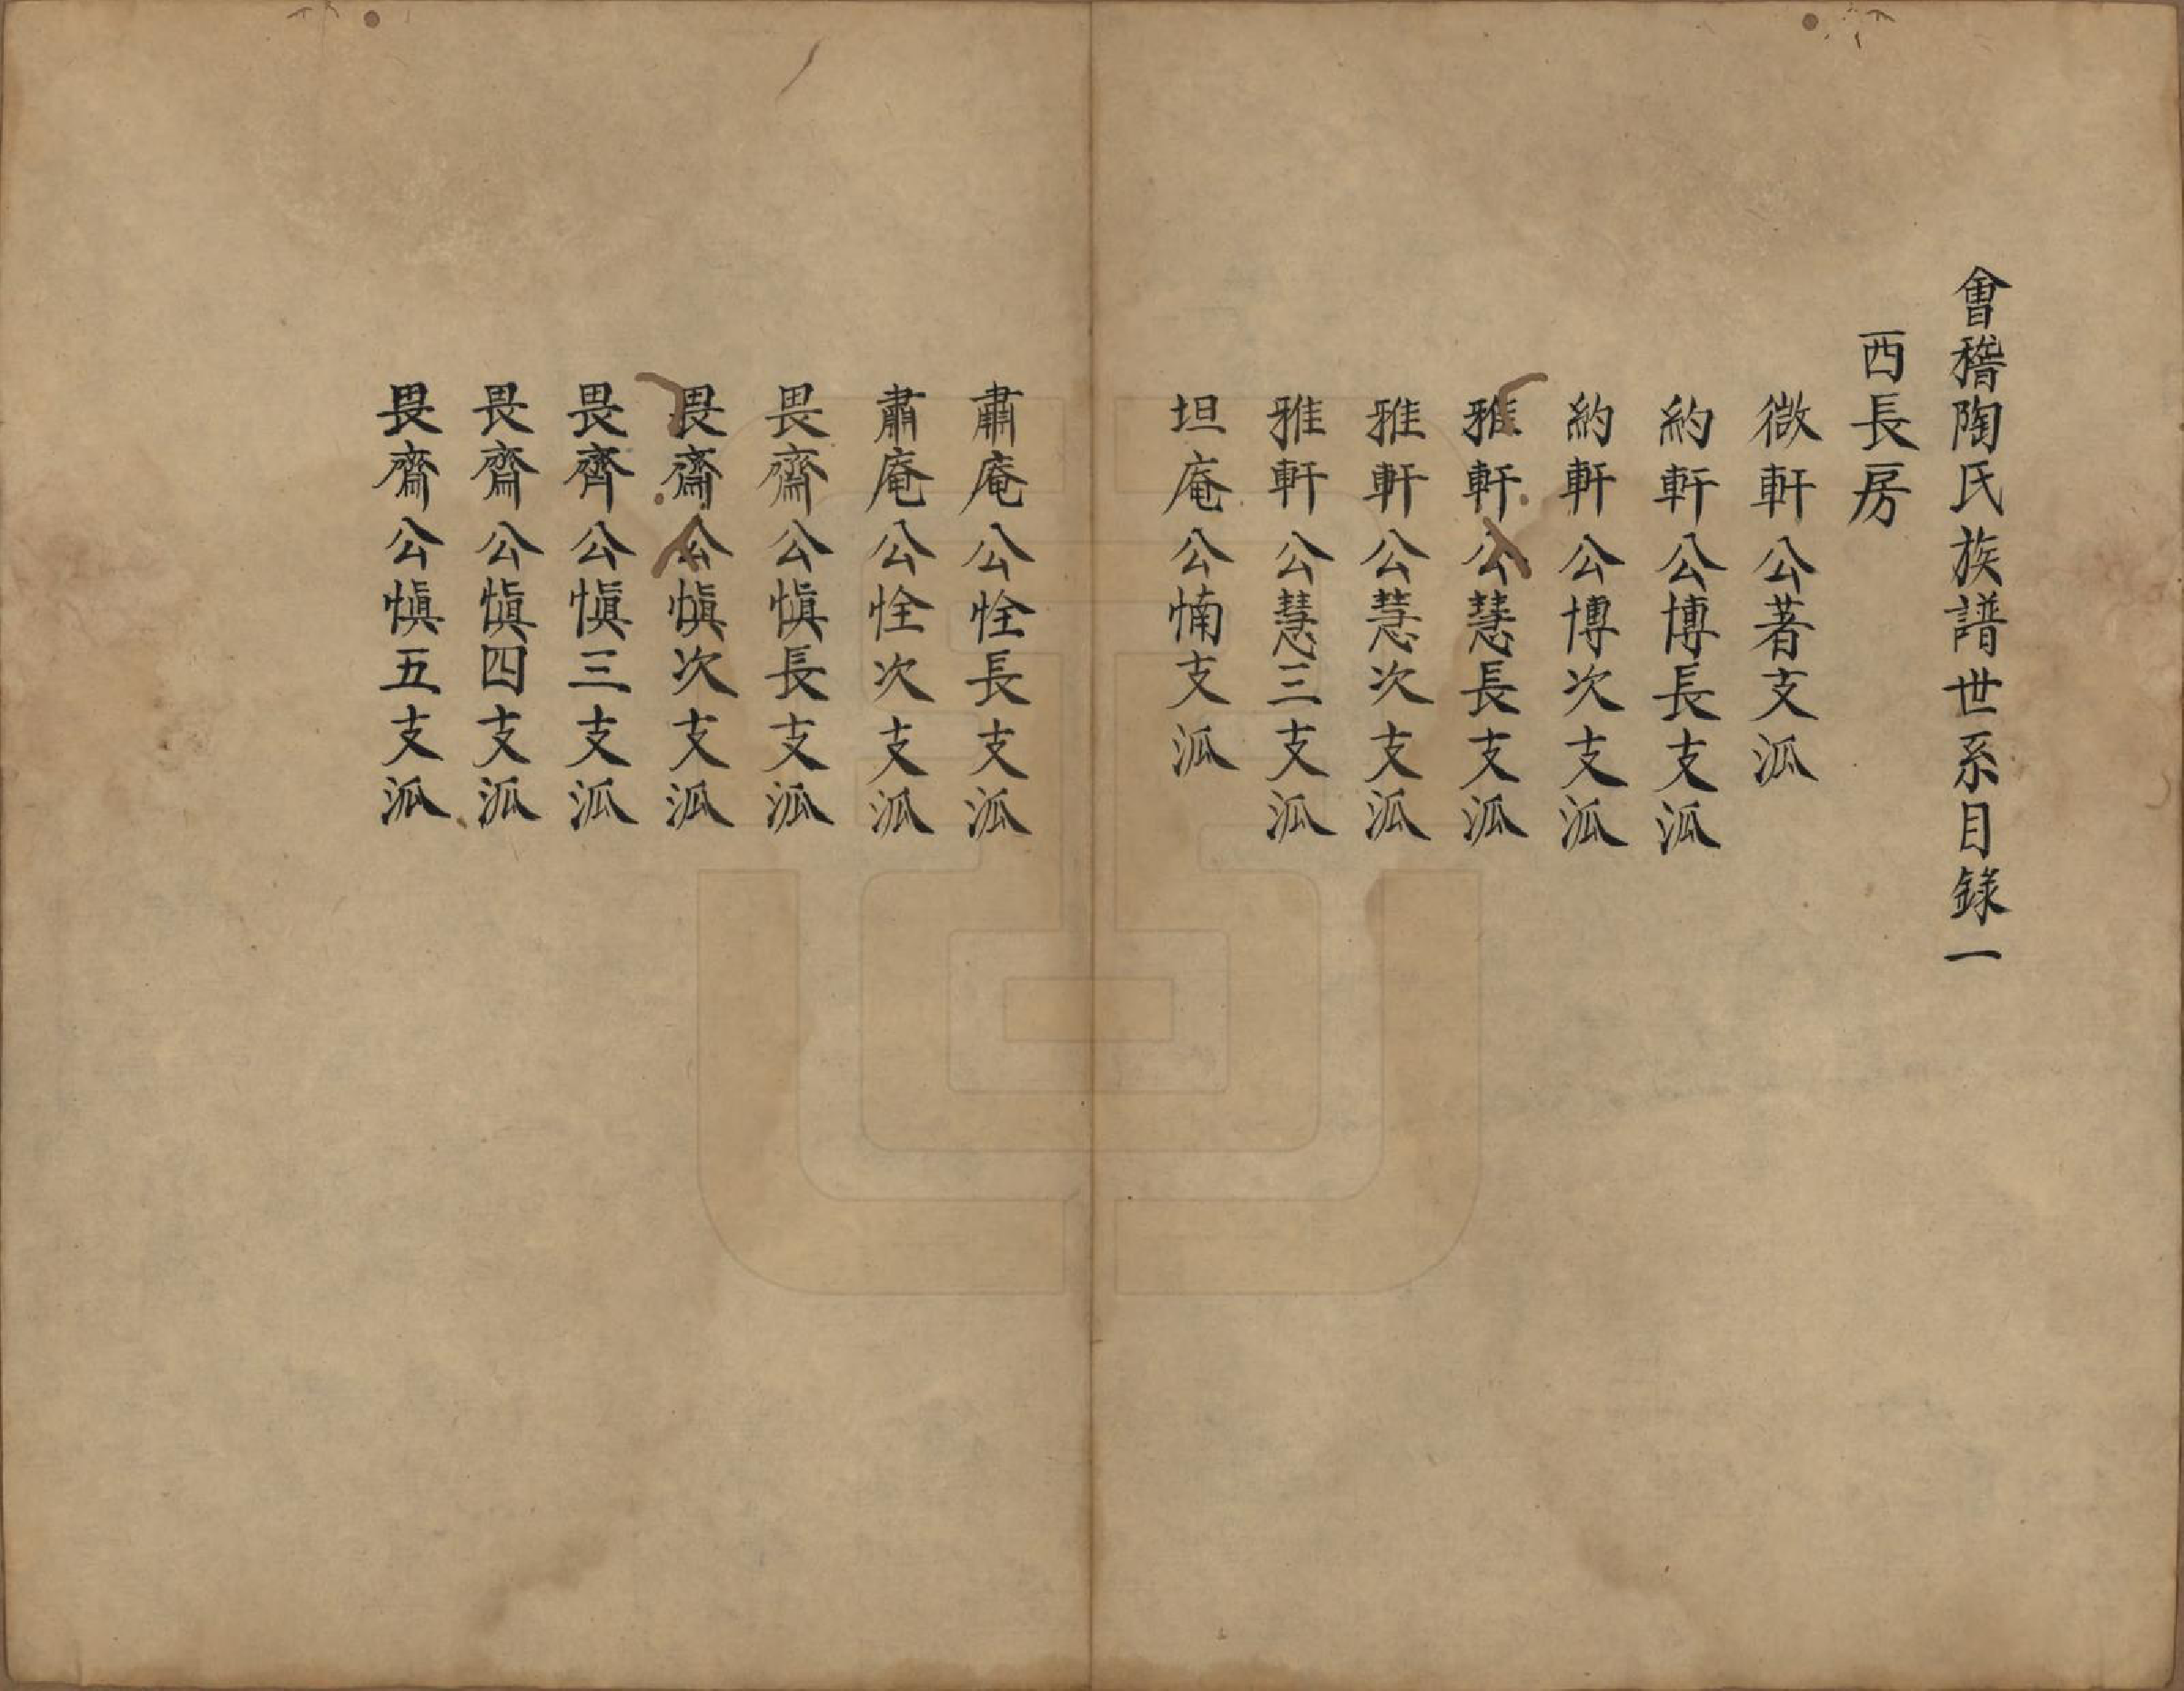 會稽陶氏族譜世系目錄一
西長房
微軒公著支派
約軒公博長支派
約軒公博次支派
雅軒公慧長支派
雅軒公慧次支派
雅軒公慧三支派
坦庵公愐支派
肅庵公恮長支派
肅庵公恮次支派
畏齋公慎長支派
畏齋公慎次支派
畏齊公慎三支派
畏齋公慎四支派
畏齋公慎五支派